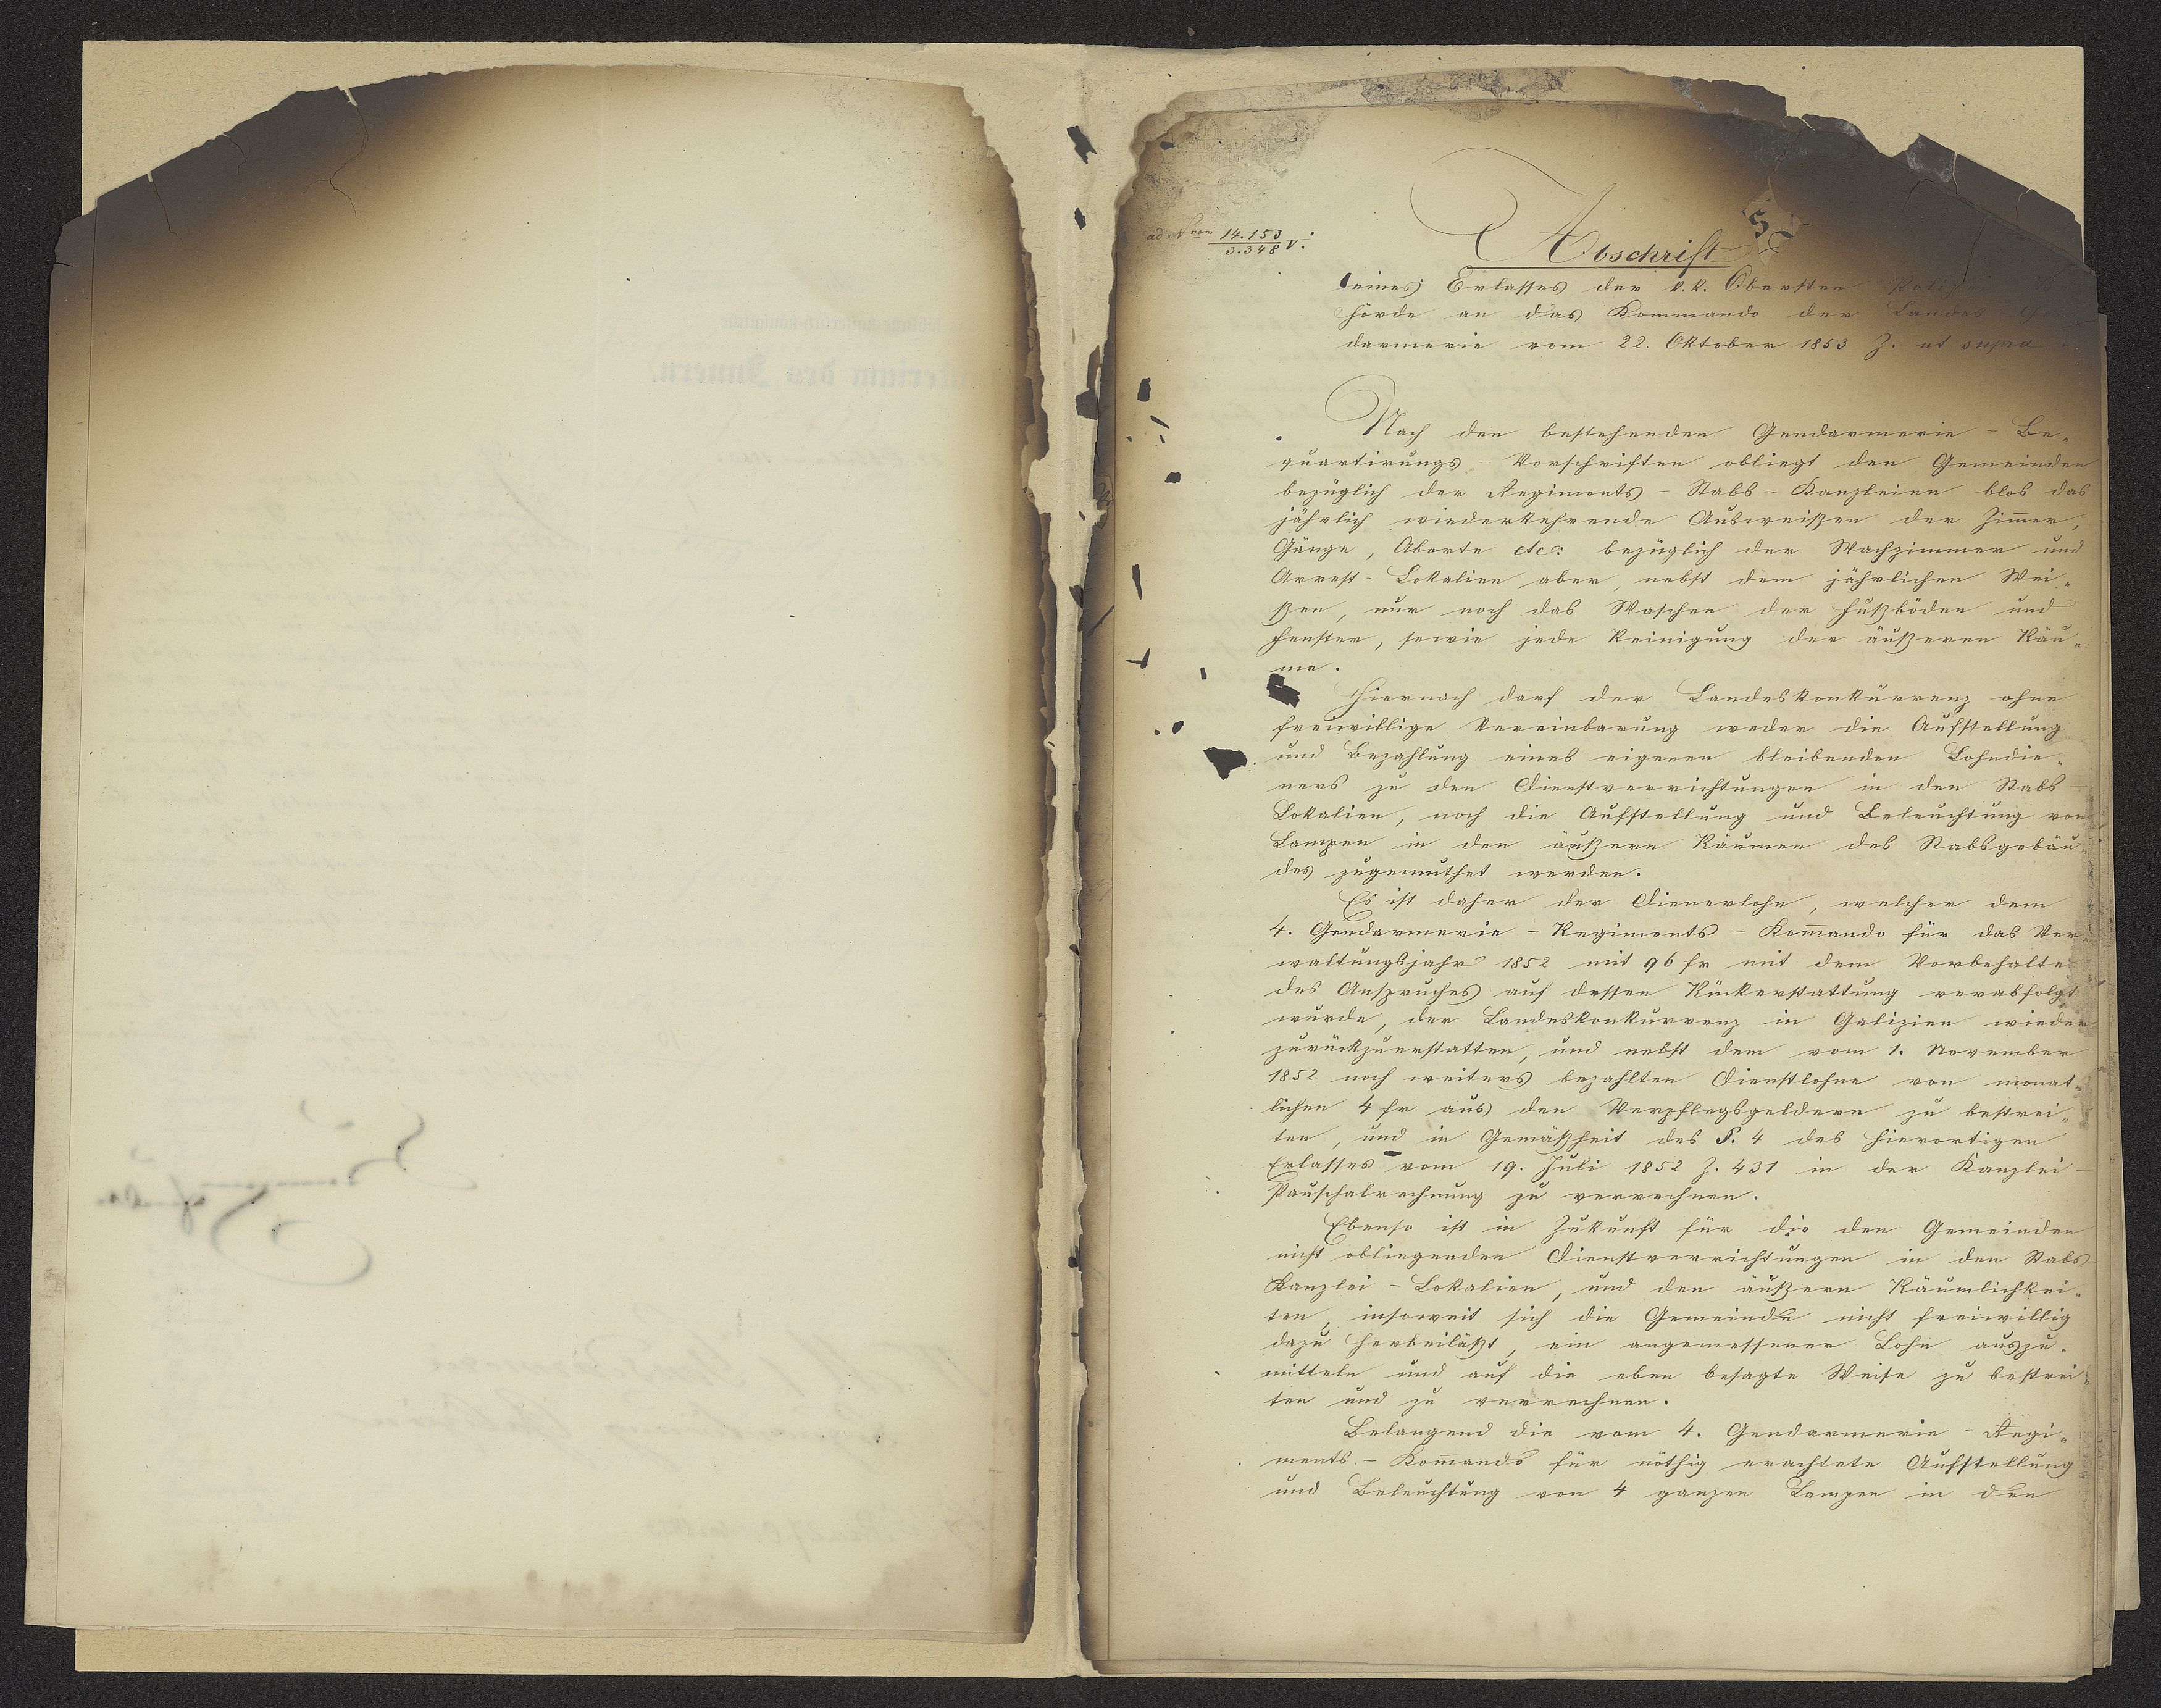 ad Nrom 14.153
3.348 V.
Abschrift
eines Erlasses der k.k. Obersten
hörde an das Kommando der Landes G
darmerie vom 22. Oktober 1853 Z. ut supra
Nach den bestehenden Gendarmerie - Be-
quartirungs - Vorschriften obliegt den Gemeinden
bezüglich der Regiments - Stabs - Kanzleien blos das
jährlich wiederkehrende Ausweißen der Zimmer,
Gänge, Aborte etc: bezüglich der Wachzimmer und
Arrest - Lokalien aber, nebst dem jährlichen Wei-
ßen, nur noch das Waschen der Fußböden und
Fenster, sowie jede Reinigung der äußeren Räu-
me.
Hiernach darf der Landeskonkurrenz ohne
freiwillige Vereinbarung weder die Aufstellung
und Bezahlung eines eigenen bleibenden Lohndie-
ners zu den Dienstverrichtungen in den Stabs -
Lokalien, noch die Aufstellung und Beleuchtung von
Lampen in den äußern Räumen des Stabsgebäu-
des zugemuthet werden.
Es ist daher der Dienerlohn, welcher dem
4. Gendarmerie - Regiments - Kom̄ando für das Ver-
waltungsjahr 1852 mit 96 fr mit dem Vorbehalte
des Anspruches auf dessen Rückerstattung verabfolgt
wurde, der Landeskonkurrenz in Galizien wieder
zurückzuerstatten, und nebst dem vom 1. November
1852 noch weiters bezahlten Dienstlohne von monat-
lichen 4 fr aus den Verpflegsgeldern zu bestrei-
ten, und in Gemäßheit des §. 4 des hierortigen
Erlasses vom 19. Juli 1852 Z. 431 in der Kanzlei -
Pauschalrechnung zu verrechnen.
Ebenso ist in Zukunft für die den Gemeinden
nicht obliegenden Dienstverrichtungen in den Stabs-
Kanzlei - Lokalien, und den äußern Räumlichkei-
ten, insoweit sich die Gemeinde nicht freiwillig
dazu herbeiläßt, ein angemessener Lohn auszu-
mitteln und auf die eben besagte Weise zu bestrei-
ten und zu verrechnen.
Belangend die vom 4. Gendarmerie - Regi-
ments - Kom̄ando für nöthig erachtete Aufstellung
und Beleuchtung von 4 ganzen Lampen in den